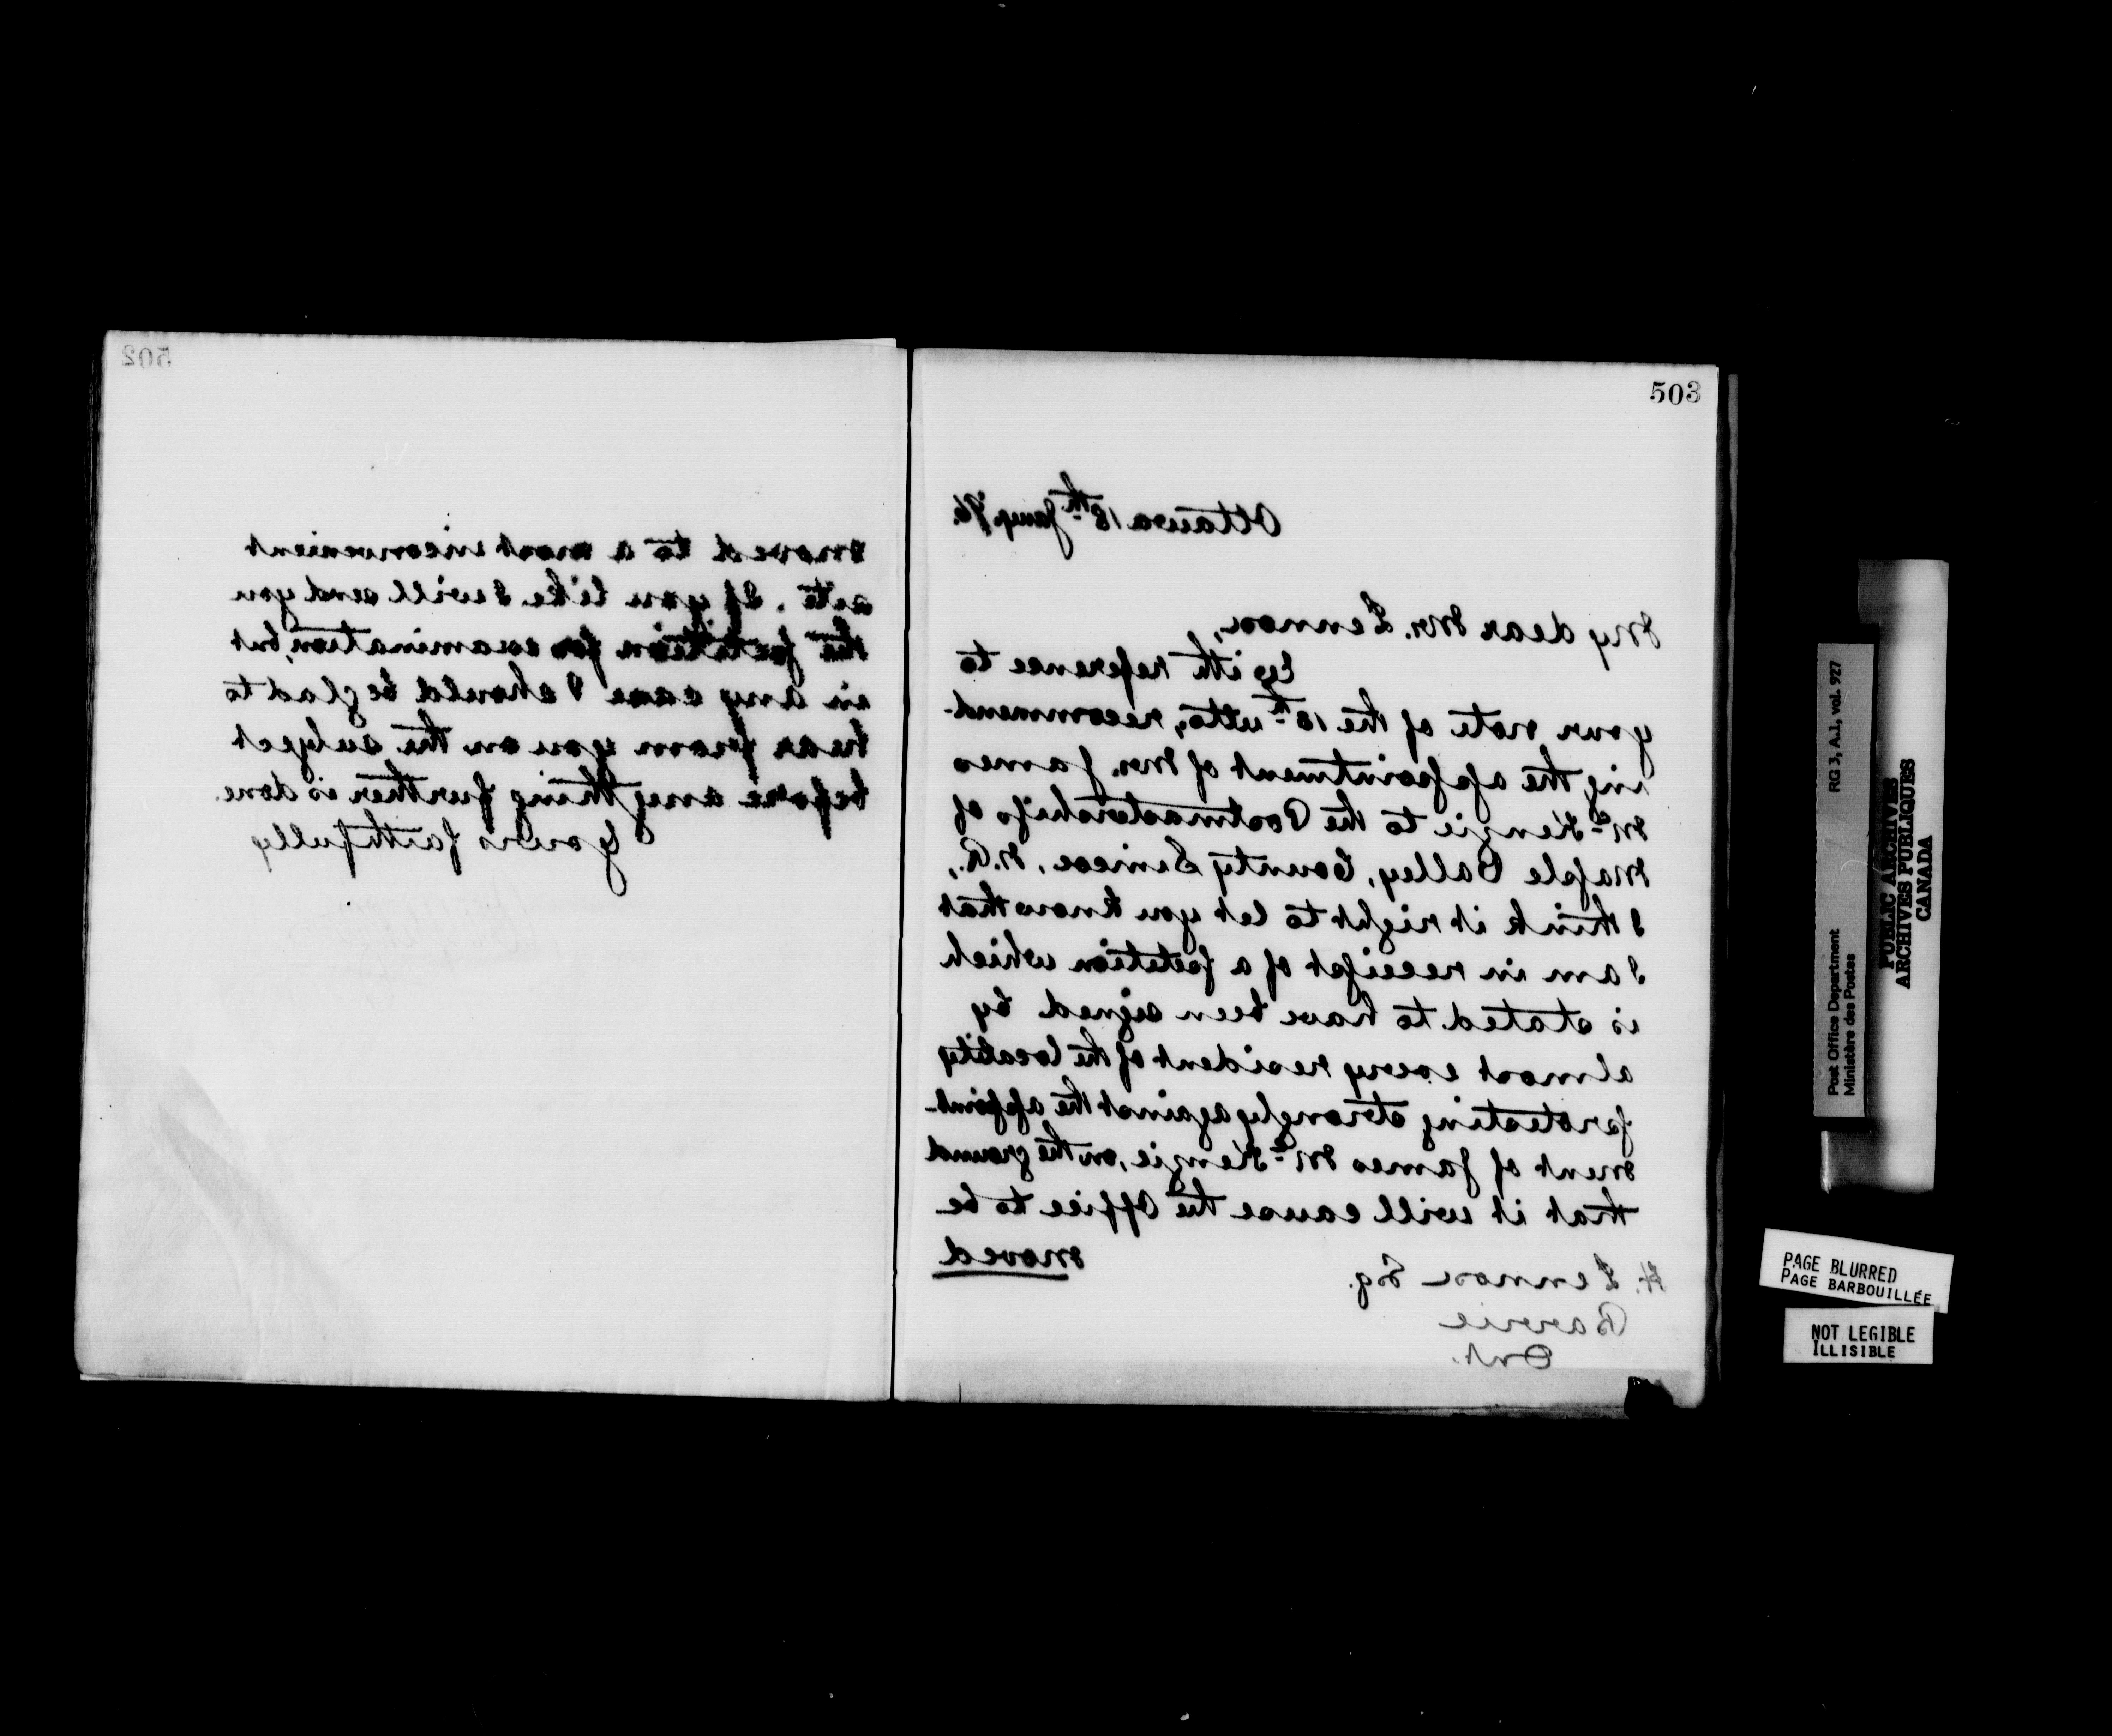 503
Ottawa 18th Jany. 96.
My dear Mr. Lennox,
With reference to
your note of the 18th ulto, recommend-
ing the appointment of Mr. James
Mc Kenzie to the Postmastership of
Maple Valley, County Simcoe, N.R.,
I think it right to let you know that
I am in receipt of a petition which
is stated to have been signed by
almost every resident of the locality
protesting strongly against the appoint-
ment of James Mc Kenzie, on the ground
that it will cause the Office to be
moved
H. Lennox Esq.
Barrie
Ont.
502
moved to a most inconvenient
site. If you like I will send you
the petition for examination, but
in any case I should be glad to
hear from you on the subject
before anything further is done.
Yours faithfully
Post Office Department
Ministère des Postes
RG 3, A.1, vol. 927
PUBLIC ARCHIVES
ARCHIVES PUBLIQUES
CANADA
PAGE BLURRED
PAGE BARBOUILLÉE
NOT LEGIBLE
ILLISIBLE